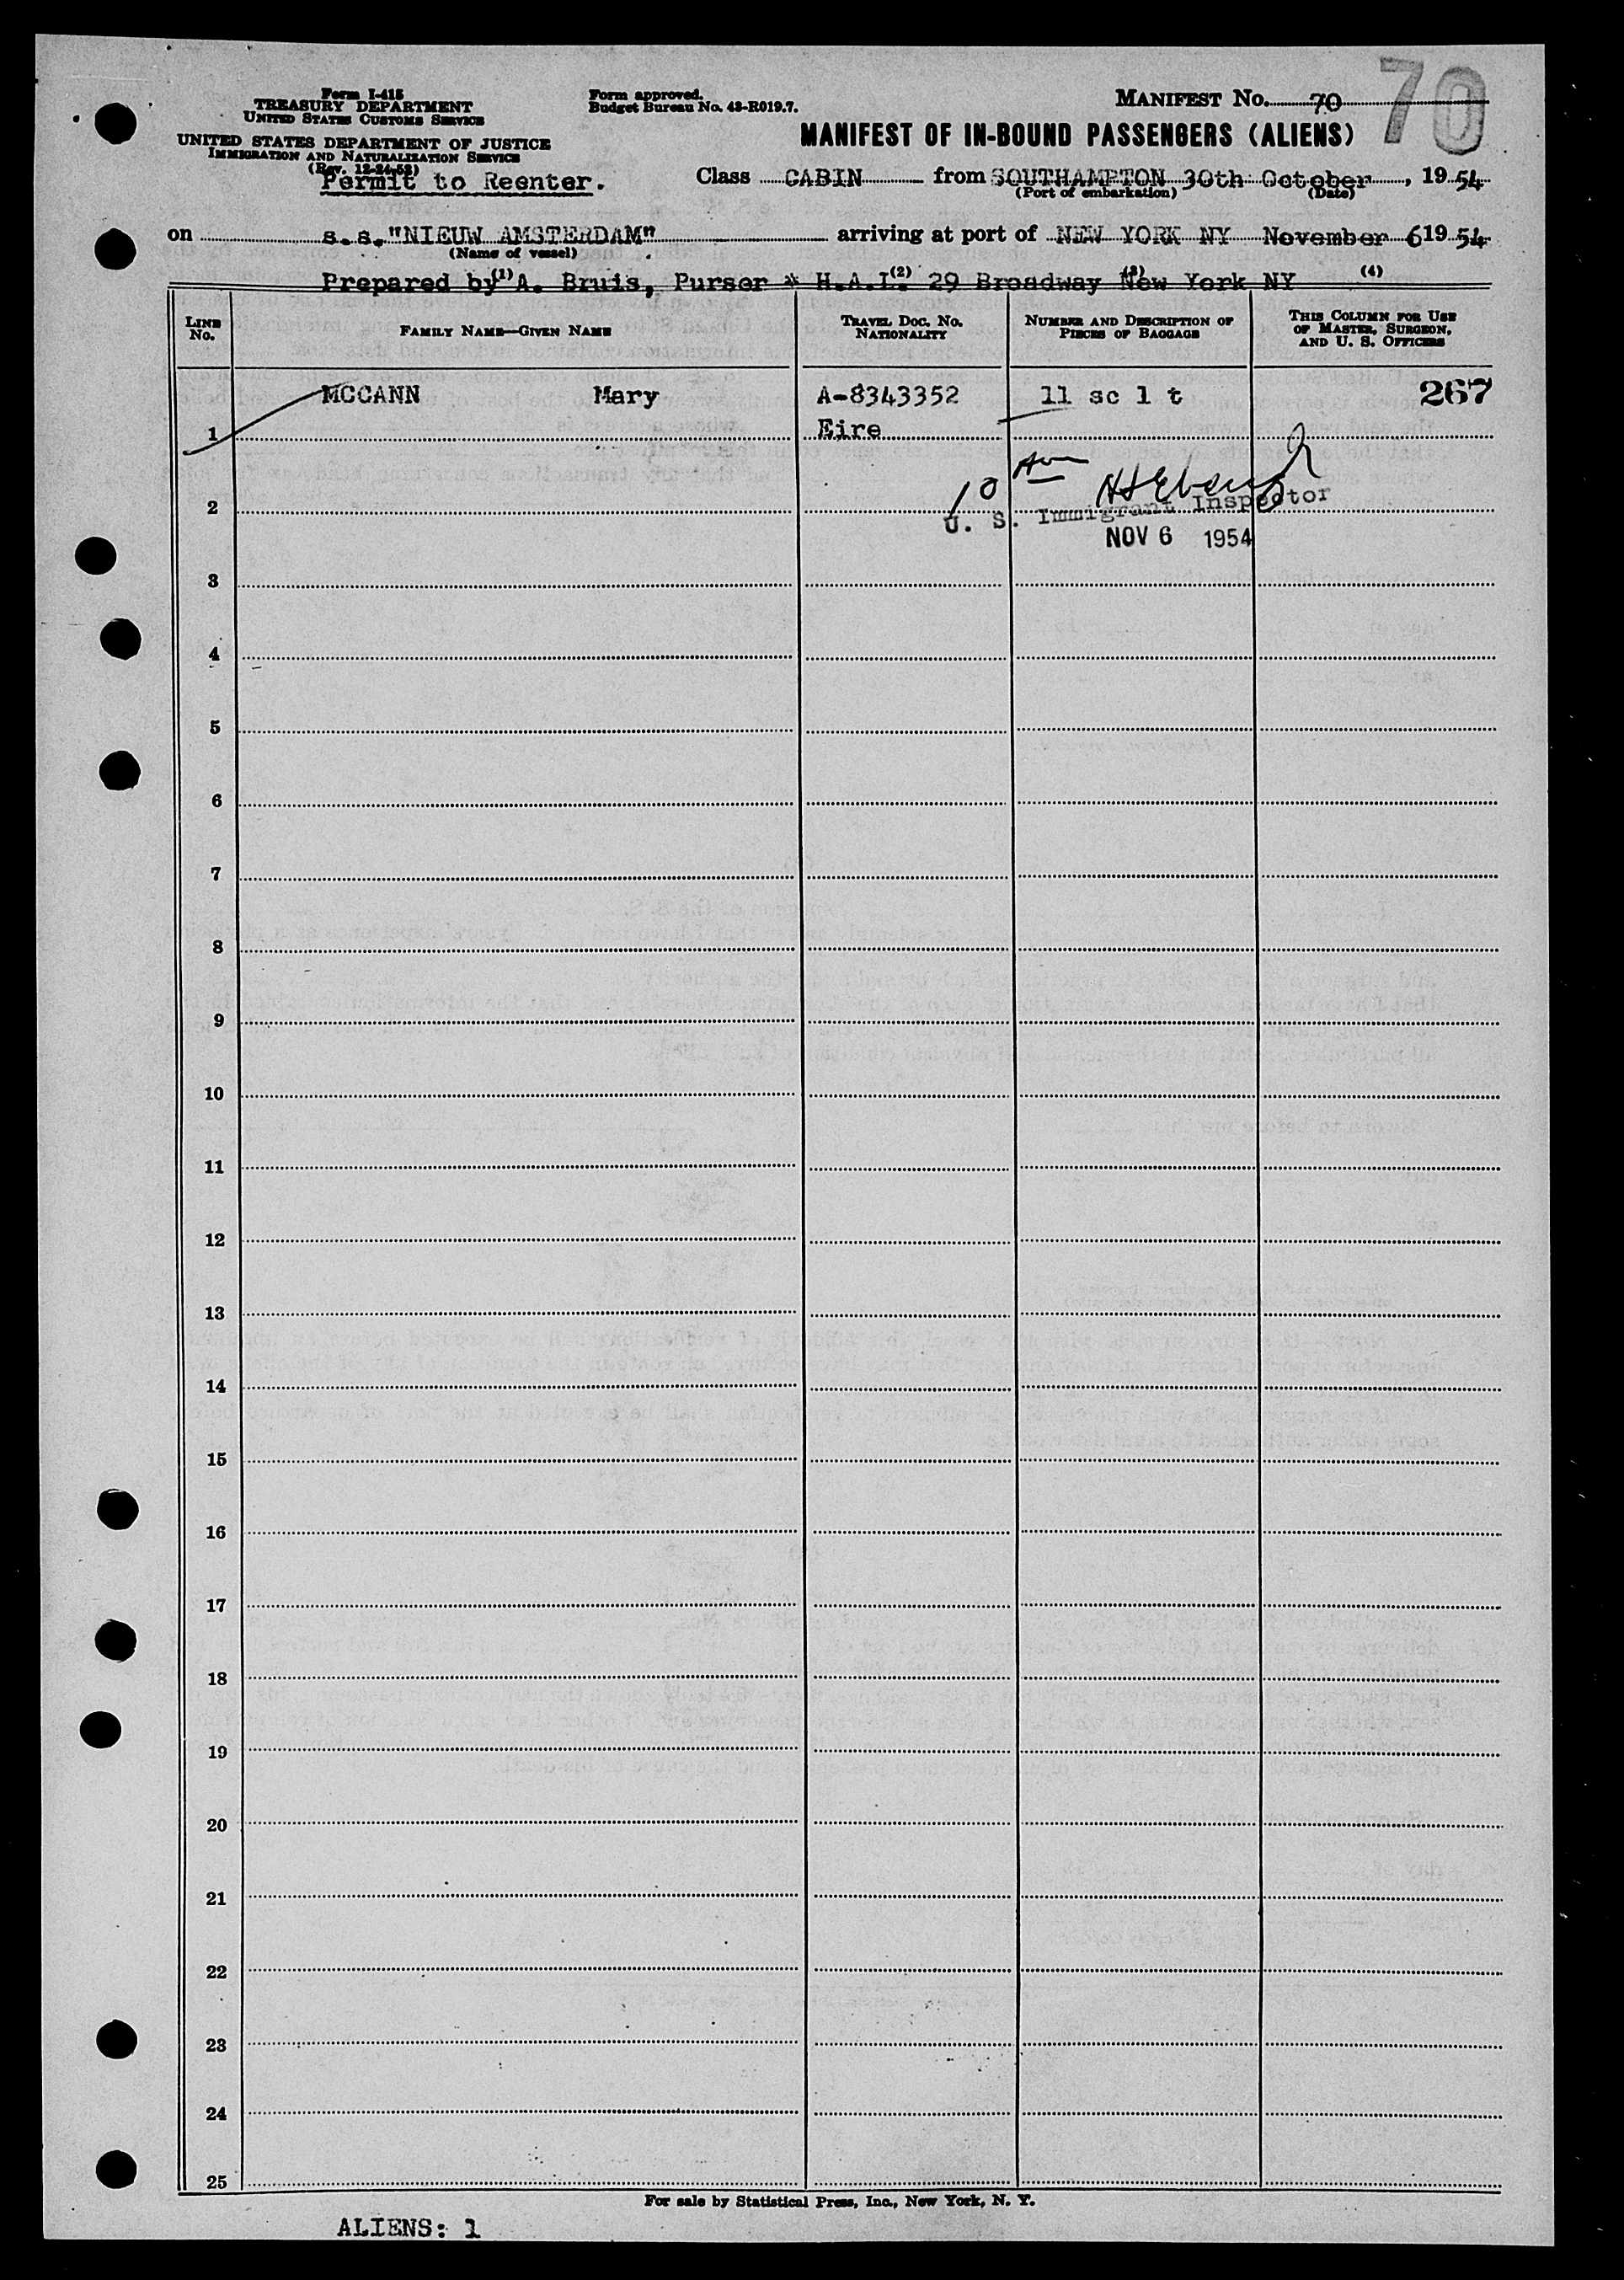 70
Form I-415
TREASURY DEPARTMENT
UNITED STATES CUSTOMS SERVICE
UNITED STATES DEPARTMENT OF JUSTICE
IMMIGRATION AND NATURALIZATION SERVICE
(Rev. 12-24-52)
Permit to Reenter.
Form approved.
Budget Bureau No. 43-R019.7.
MANIFEST No. 70
MANIFEST OF IN-BOUND PASSENGERS (ALIENS)
Class CABIN from SOUTHAMPTON 30th October, 1954
(Port of embarkation) (Date)
on s.s."NIEUW AMSTERDAM" arriving at port of NEW YORK NY November 6 1954
(Name of vessel)
Prepared by A. Bruis, Purser * H.A.L. 29 Broadway New York NY
(1) (2) (3) (4)
LINE No. FAMILY NAME—GIVEN NAME TRAVEL DOC. No. NATIONALITY NUMBER AND DESCRIPTION OF PIECES OF BAGGAGE THIS COLUMN FOR USE OF MASTER, SURGEON, AND U. S. OFFICERS
MCCANN Mary A-8343352 11 sc 1 t 267
1 Eire
10
2
U. S. Immigrant Inspector
NOV 6 1954
3
4
5
6
7
8
9
10
11
12
13
14
15
16
17
18
19
20
21
22
23
24
25
For sale by Statistical Press, Inc., New York, N. Y.
ALIENS: 1